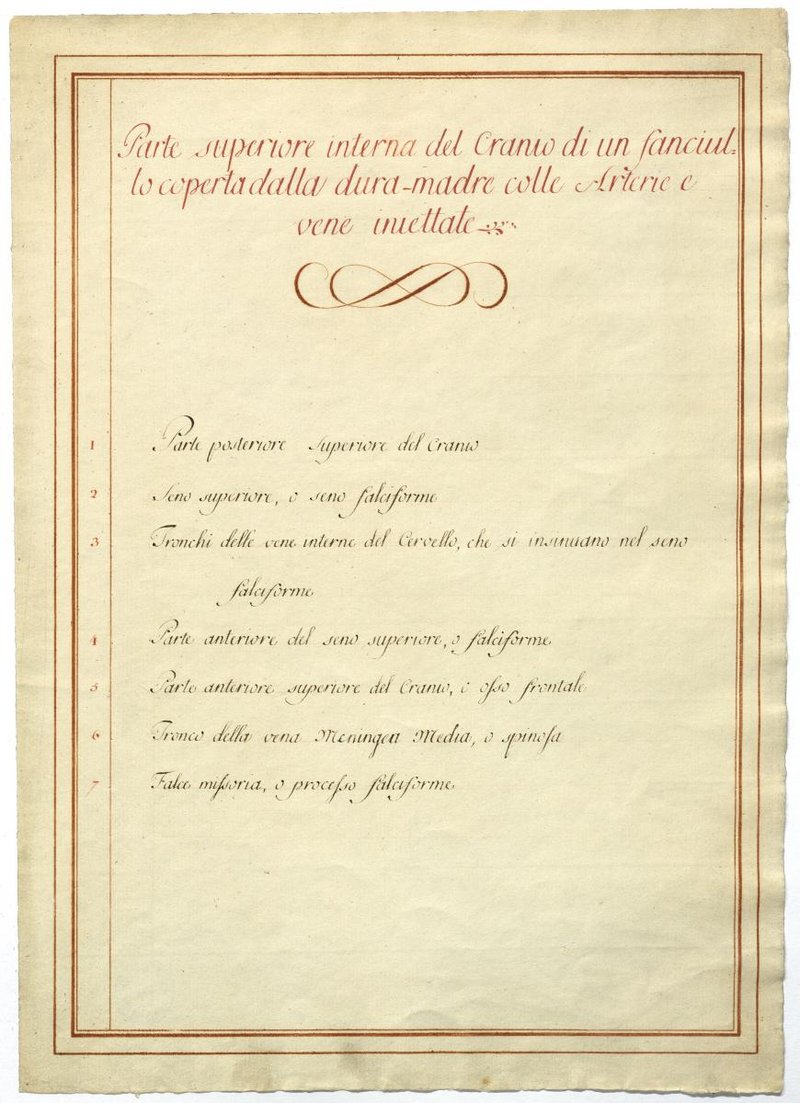 Parte superiore interna del Cranio di un fanciul=
lo coperta dalla dura-madre colle Arterie e
vene iniettate
1 Parte posteriore superiore del Cranio
2 Seno superiore, o seno falciforme
3 Tronchi delle vene interne del Cervello, che si insinuano nel seno
falciforme
4 Parte anteriore del seno superiore, o falciforme
5 Parte anteriore superiore del Cranio, o oſso frontale
6 Tronco della vena Meningea Media, o spinoſa
7 Falce miſsoria, o proceſso falciforme